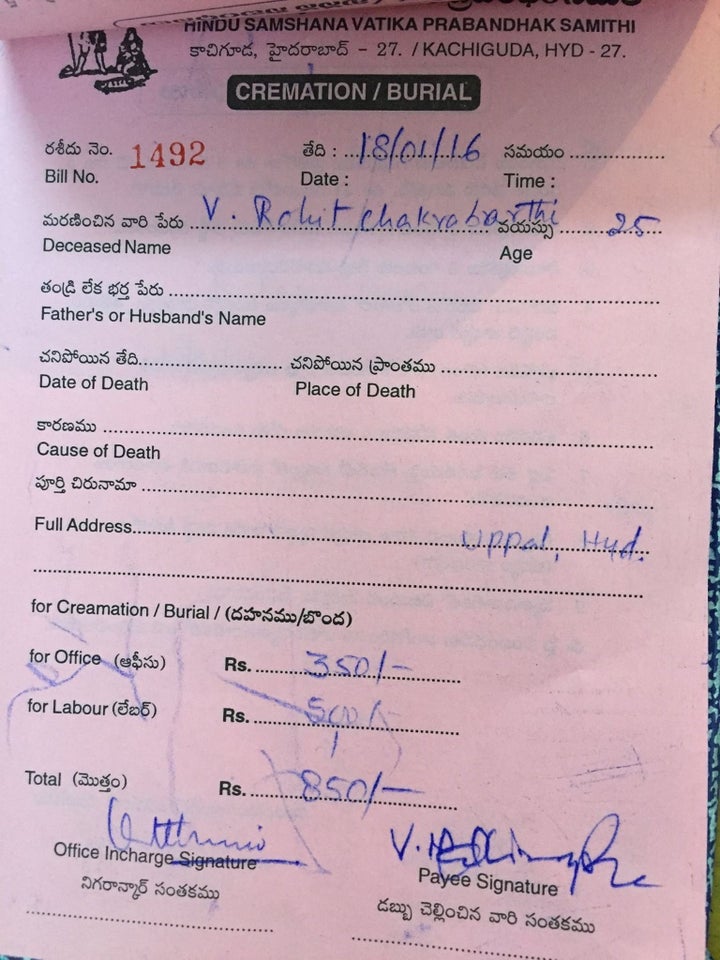 HINDU SAMSHANA VATIKA PRABANDHAK SAMITHI
కాచిగూడ, హైదరాబాద్ - 27. / KACHIGUDA, HYD - 27.
CREMATION / BURIAL
రశీదు నెం. 1492 తేది : 18/01/16 సమయం
Bill No. Date : Time :
మరణించిన వారి పేరు V. Rohit chakrabarthi వయస్సు 25
Deceased Name Age
తండ్రి లేక భర్త పేరు
Father's or Husband's Name
చనిపోయిన తేది చనిపోయిన ప్రాంతము
Date of Death Place of Death
కారణము
Cause of Death
పూర్తి చిరునామా
Full Address Uppal, Hyd.
for Creamation / Burial / (దహనము/బొంద)
for Office (ఆఫీసు) Rs. 350/-
for Labour (లేబర్) Rs. 500/-
Total (మొత్తం) Rs. 850/-
Office Incharge Signature
Payee Signature
నిగరాన్కార్ సంతకము
డబ్బు చెల్లించిన వారి సంతకము